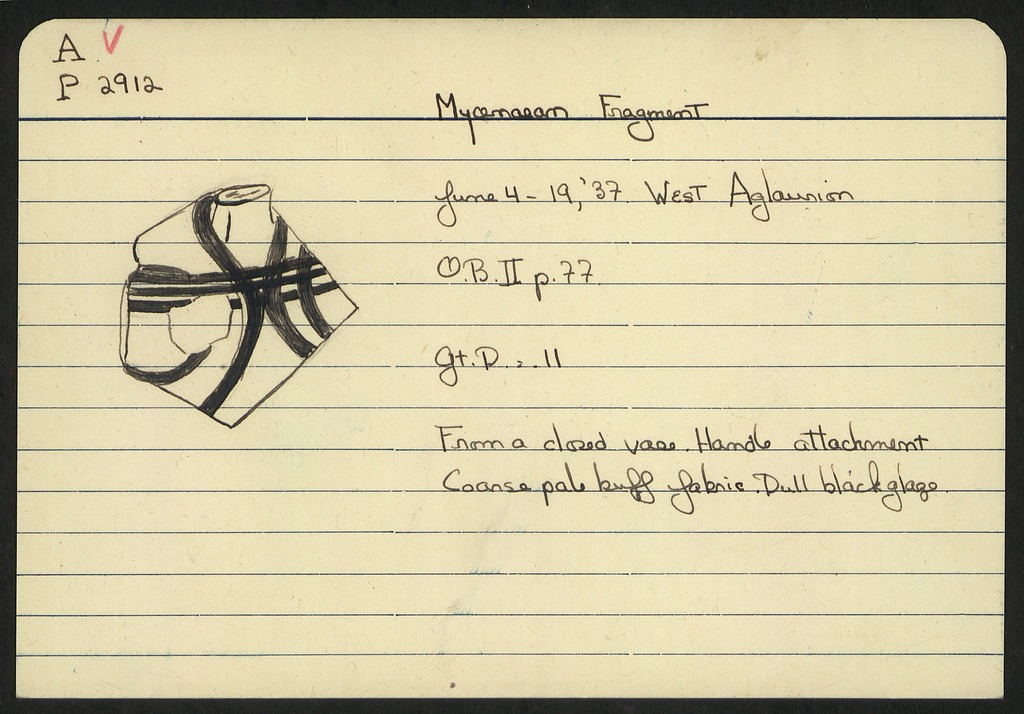 A V
P 2912
Mycenaean Fragment
June 4-19,'37. West Aglaurion
O.B. II p.77
Gt.D. : .11
From a closed vase. Handle attachment
Coarse pale buff fabric. Dull black glaze.